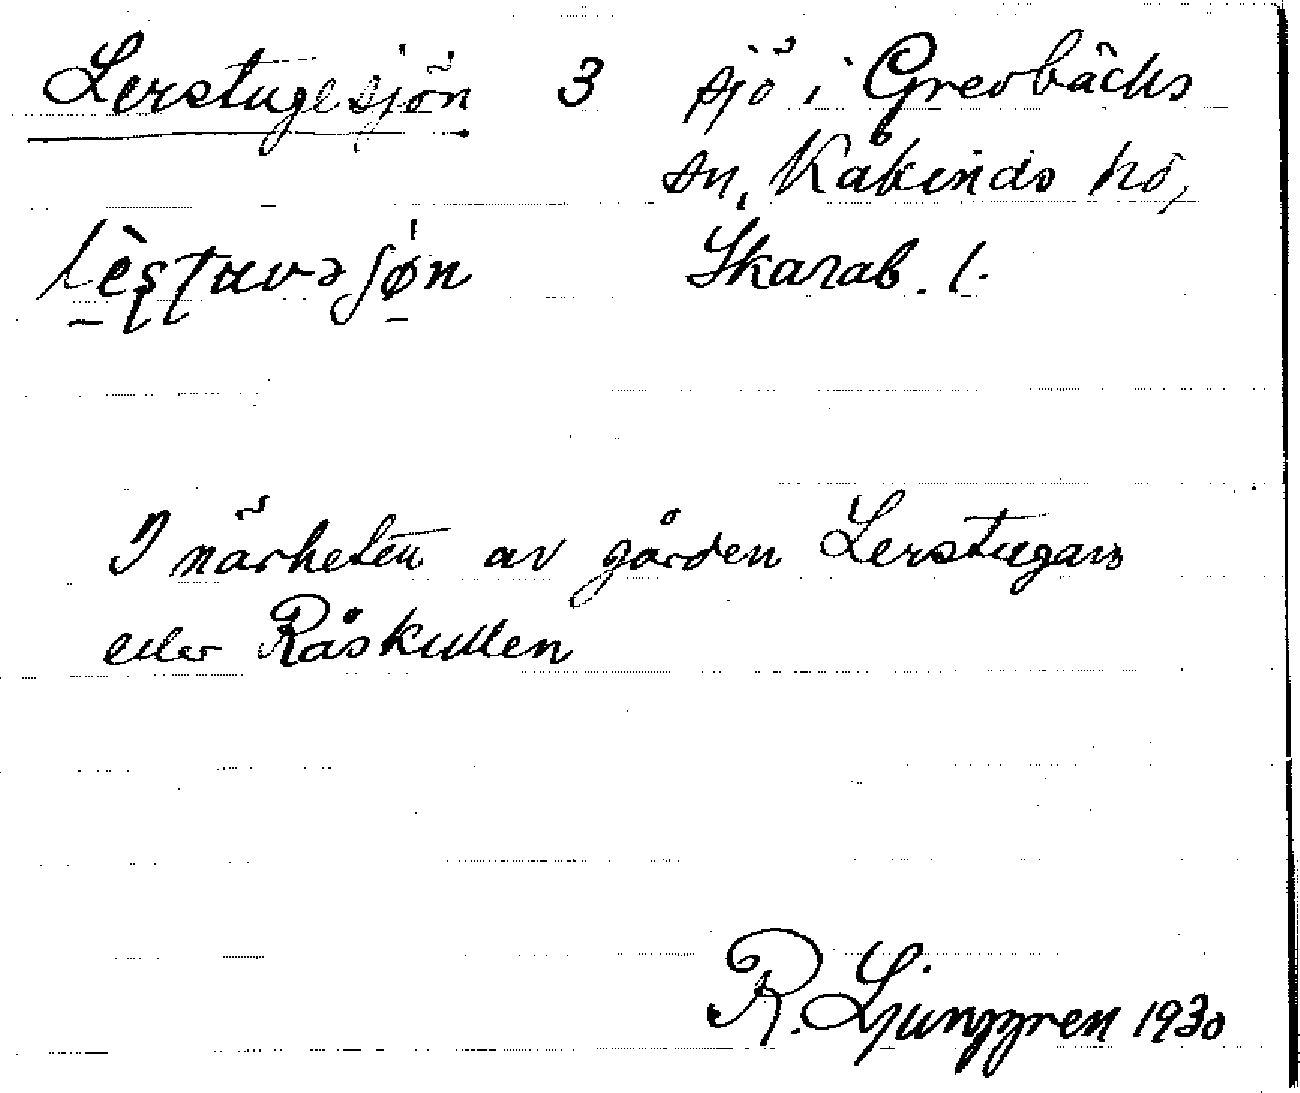 Lerstugesjön 3 sjö i Grevbäcks
sn, Kåkinds hd,
lèstuvəsjøn Skarab. l.
I närheten av gården Lerstugan
eller Råskullen
R. Ljunggren 1930